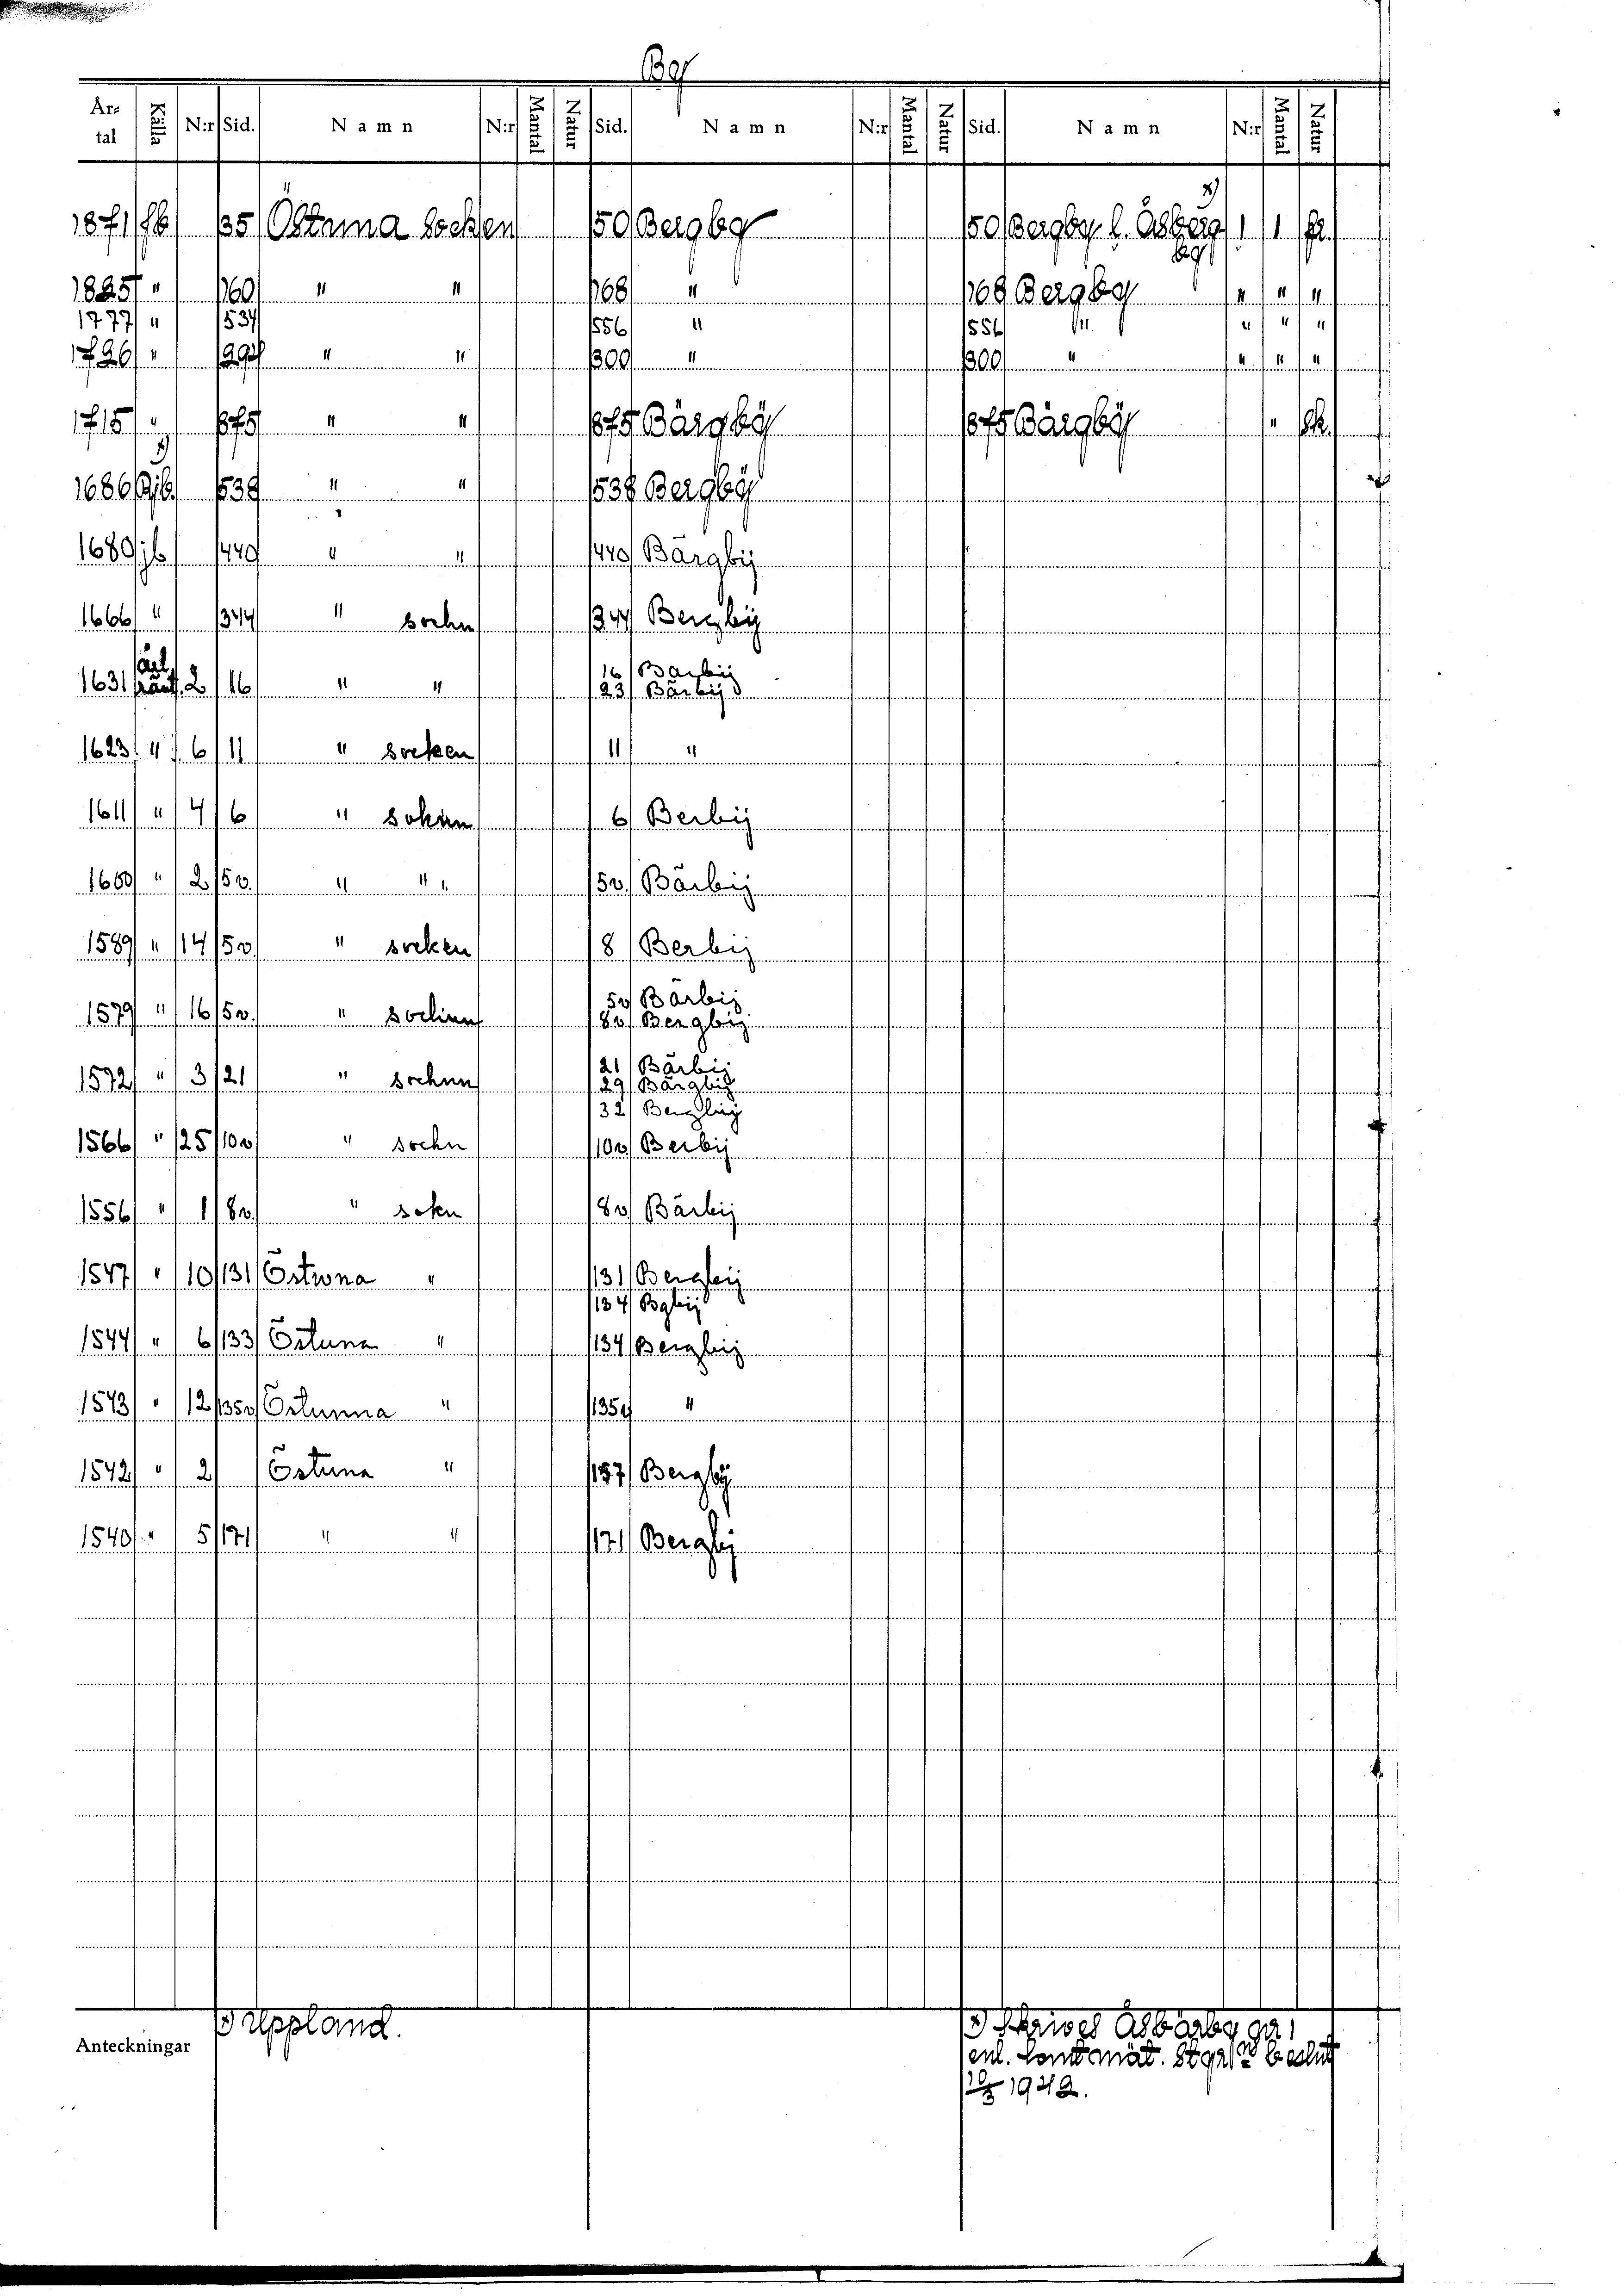 Ber
År-tal Källa N:r Sid. Namn N:r Mantal Natur Sid. Namn N:r Mantal Natur Sid. Namn N:r Mantal Natur
x)
1871 jb 35 Östuna socken 50 Bergby 50 Bergby l. Åsberg- 1 1 fr.
by
1825 " 160 " " 168 " 168 Bergby " " "
1777 " 534 556 " 556 " " " "
1726 " 294 " " 300 " 300 " " " "
1715 " 875 " " 875 Bärgbÿ 875 Bärgbÿ " sk.
x)
1686 Rjb. 538 " " 538 Bergbÿ
1680 jb 440 " " 440 Bärgbij
1666 " 344 " sochn 344 Bergbij
äl. 16 Bärbij
1631 ränt. 2 16 " " 23 Bärbij
1623 " 6 11 " socken 11 "
1611 " 4 6 " sokun 6 Berbij
1600 " 2 5v. " " 5v. Bärbij
1589 " 14 5v. " socken 8 Berbij
5v Bärbij
1579 " 16 5v. " sochnn 8v Bergbij
21 Bärbij
1572 " 3 21 " sochnn 29 Bärgbij
32 Bergbij
1566 " 25 10v " sochn 10v Berbij
1556 " 1 8v. " sokn 8v Bärbij
1547 " 10 131 Östwna " 131 Bergbij
134 Bgbij
1544 " 6 133 Östuna " 134 Bergbij
1543 " 12 135v Östunna " 135v "
1542 " 2 Östuna " 157 Bergbÿ
1540 " 5 171 " " 171 Bergbij
Anteckningar
x) Uppland.
x) Skrives Åsbärby nr 1
enl. Lantmät. St:s beslut
10/3 1942.